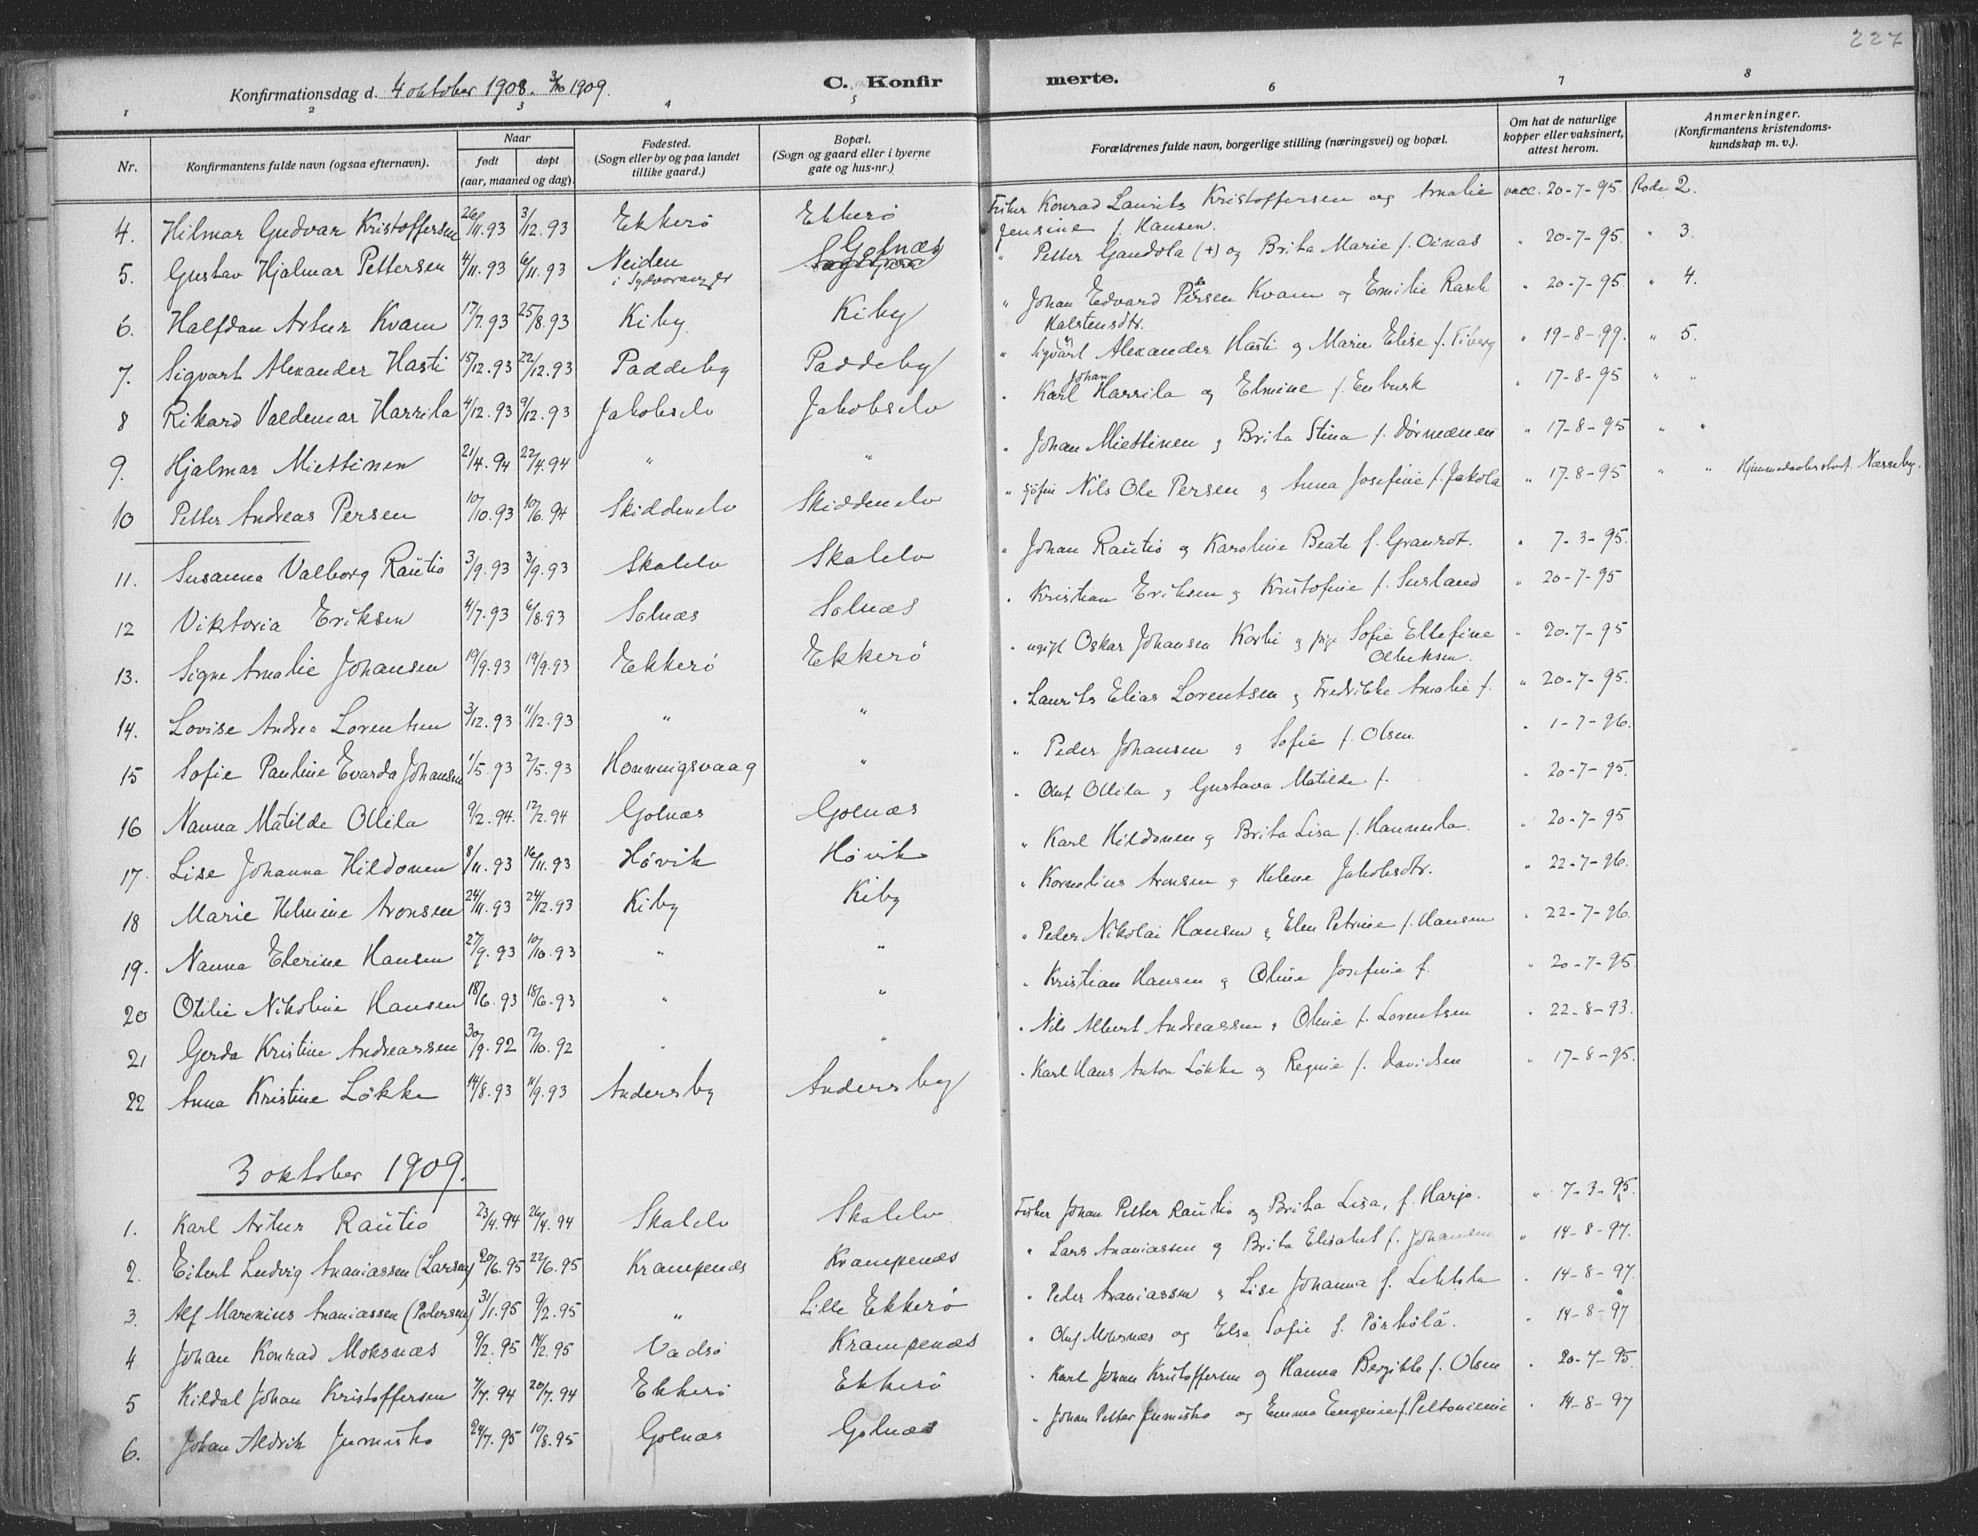 227
Konfirmationsdag d. 4 oktober 1908. 3/10 1909.
C. Konfirmerte.
1 2 3 4 5 6 7 8
Nr. Konfirmantens fulde navn (ogsaa efternavn). Naar født døpt (aar, maaned og dag). Fødested. (Sogn eller by og paa landet tillike gaard.) Bopæl. (Sogn og gaard eller i byerne gate og hus-nr.) Forældrenes fulde navn, borgerlige stilling (næringsvei) og bopæl. Om hat de naturlige kopper eller vaksinert, attest herom. Anmerkninger. (Konfirmantens kristendoms-kundskap m. v.).
4. Hilmar Gudvar Kristoffersen 26/11.93 3/12.93 Ekkerø Ekkerø Fisker Konrad Laurits Kristoffersen og Amalie Jensine f. Hansen. vacc. 20-7-95. Rode 2.
5. Gustav Hjalmar Pettersen 4/11.93 6/11.93 Neiden i Sydvaranger Golnæs " Petter Gandola (+) og Brita Marie f. Oinas " 20-7-95. " 3.
6. Halfdan Artur Kvam 17/7.93 25/8.93 Kiby Kiby " Johan Edvard Persen Kvam og Emilie Rasch Halstensdtr. " 20-7-95. " 4.
7. Sigvart Alexander Hasti 15/12.93 22/12.93 Paddeby Paddeby " Sigvart Alexander Hasti og Marie Elise f. Tiberg " 19-8-99. " 5.
8 Rikard Valdemar Harrila 4/12.93 9/12.93 Jakobselv Jakobselv " Karl Johan Harrila og Elmine f. Enbusk " 17-8-95 " "
9. Hjalmar Miettinen 21/4.94 22/4.94 " " " Johan Miettinen og Brita Stina f. " 17-8-95 " "
10 Petter Andreas Persen 10/10.93 10/6.94 Skiddenelv Skiddenelv " sjøfin Nils Ole Persen og Anna Josefine f. Jakola " 17-8-95 " " Næsseby.
11. Susanna Valborg Rautio 3/9.93 3/9.93 Skalelv Skalelv " Johan Rautio og Karoline Beate f. Granrot. " 7-3-95.
12 Viktoria Eriksen 4/7.93 6/8.93 Solnæs Solnæs " Kristian Eriksen og Kristofine f. " 20-7-95
13. Signe Amalie Johansen 19/9.93 19/9.93 Ekkerø Ekkerø " ugift Oskar Johansen Korbi og pige Sofie Ellefine " 20-7-95
14. Lovise Andrea Lorentsen 3/12.93 11/12.93 " " " Laurits Elias Lorentsen og Fredrikke Amalie f. " 20-7-95.
15 Sofie Pauline Evarda Johansen 1/5.93 2/5.93 Honningsvaag " " Peder Johansen og Sofie f. Olsen " 1-7-96.
16 Nanna Matilde Ollila 9/2.94. 12/2.94 Golnæs Golnæs " Olut Ollila og Gustava Matilde f. " 20-7-95.
17. Lise Johanna Hildonen 8/11.93 16/11.93 Høvik Høvik " Karl Hildonen og Brita Lisa f. Hannula. " 20-7-95
18 Marie Helmine Aronsen 24/11.93 24/12.93 Kiby Kiby " Kornelius Aronsen og Helene Jakobsdtr. " 22-7-96.
19. Nanna Elerine Hansen 27/9.93 10/10.93 " " " Peder Nikolai Hansen og Elen Petrine f. Hansen " 22-7-96.
20 Otilie Nikoline Hansen 18/6.93 18/6.93 " " " Kristian Hansen og Oline Josefine f. " 20-7-95
21 Gerda Kristine Andreassen 30/9.92 12/10.92 " " " Nils Albert Andreassen og Oline f. Lorentsen " 22-8-93.
22 Anna Kristine Løkke 14/8.93 11/9.93 Andersby Andersby " Karl Hans Anton Løkke og Regine f. Davidsen " 17-8-95.
3 oktober 1909.
1. Karl Artur Rautio 23/4.94 26/4.94 Skalelv Skalelv Fisker Johan Petter Rautio og Brita Lisa, f. Harjo. " 7-3-95.
2. Eilert Ludvig Ananiassen (Larsen) 20/6.95 22/6.95 Krampenæs Krampenæs " Lars Ananiassen og Brita Elisabet f. Johansen " 14-8-97.
3. Alf Marenius Ananiassen (Pedersen) 31/1.95 9/2.95 " Lille Ekkerø " Peder Ananiassen og Lise Johanna f. Lekkola " 14-8-97.
4 Johan Konrad Moksnæs 9/2.95 14/2.95 Vadsø Krampenæs " Oluf Moksnæs og Elsa Sofie f. Pörhölä. " 14-8-97
5 Hildal Johan Kristoffersen 7/7.94 20/7.94 Ekkerø Ekkerø " Karl Johan Kristoffersen og Hanna Bergitte f. Olsen " 20-7-95.
6. Johan Aldrik Jumisko 24/7.95 10/8.95 Golnæs Golnæs " Johan Petter Jumisko og Emma Eugenie f. Peltoniemi " 14-8-97